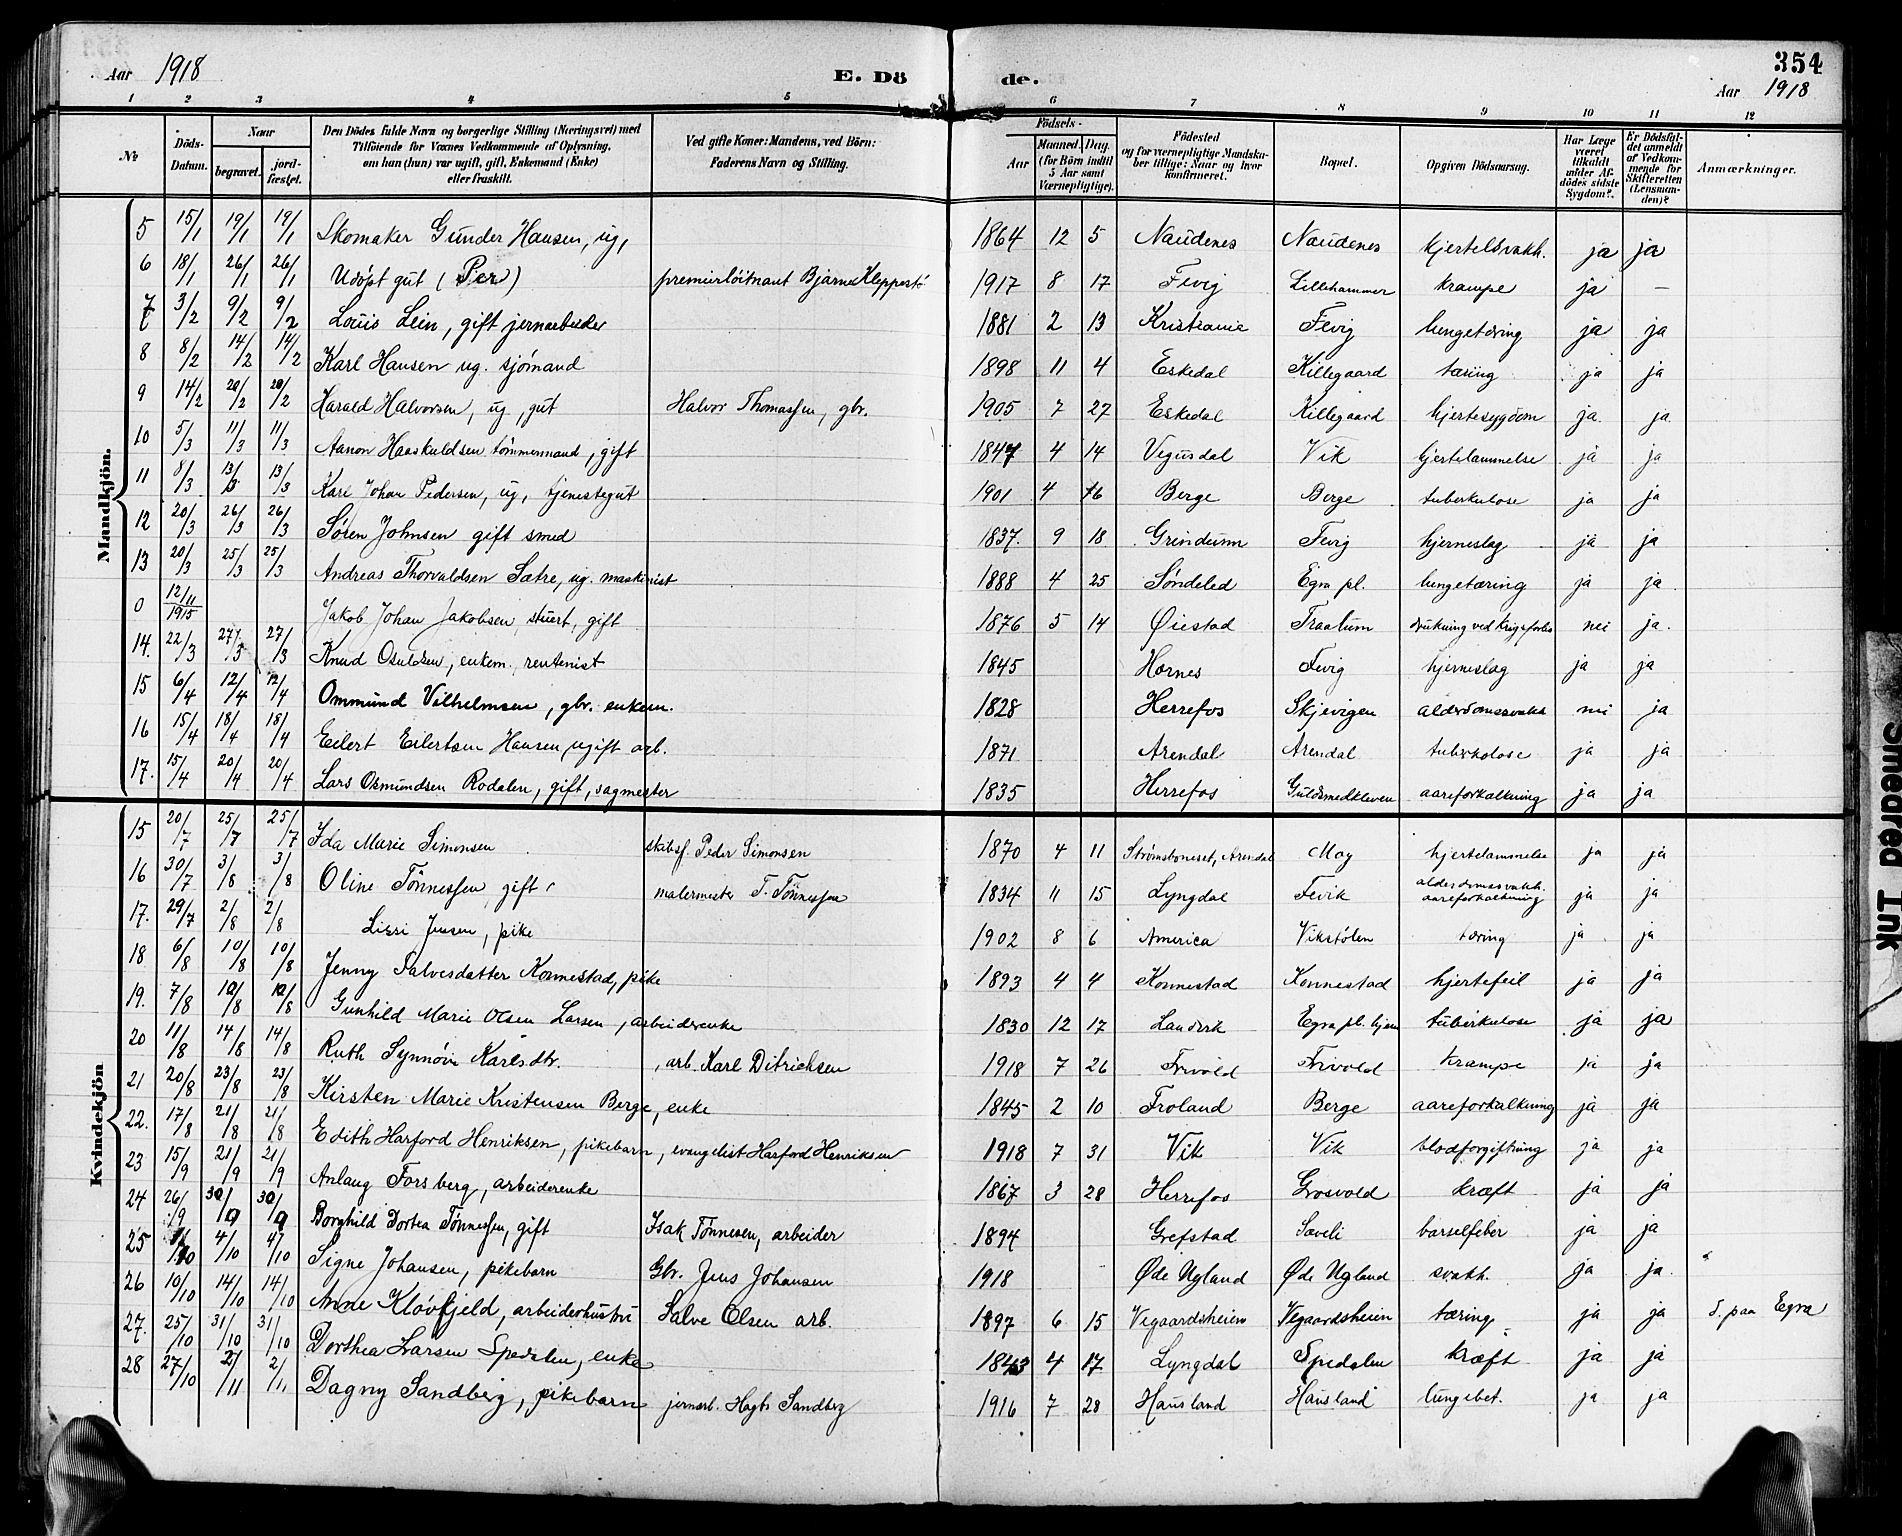 354
Aar 1918 E. Dö de. Aar 1918
1 2 3 4 5 6 7 8 9 10 11 12
No Döds-Datum. Naar begravet. jord-fæstet. Den Dödes fulde Navn og borgerlige Stilling (Næringsvei) med Tilföiende for Voxnes Vedkommende af Oplysning, om han (hun) var ugift, gift, Enkemand (Enke) eller fraskilt. Ved gifte Koner: Mandens, ved Börn: Faderens Navn og Stilling. Födsels- Aar Maaned. Dag. (for Börn indtil 5 Aar samt Værnepligtige). Födested og for værnepligtige Mandskaber tillige: Naar og hvor konfirmeret. Bopæl. Opgiven Dödsaarsag. Har Læge været tilkaldt under Afdödes sidste Sygdom? Er Dödsfaldet anmeldt af Vedkommende for Skifteretten (Lensmanden)? Anmærkninger.
Mandkjön.
5 15/1 19/1 19/1 Skomaker Gunder Hansen, ug, 1864 12 5 Naudenes Naudenes kjertelsvakh. ja ja
6 18/1 26/1 26/1 Udöpt gut (Per) premierlöitnant Bjarne Kleppestö 1917 8 17 Fevig Lillehammer krampe ja —
7 3/2 9/2 9/2 Louis Lein, gift jernarbeider 1881 2 13 Kristiania Fevig lungetæring ja ja
8 8/2 14/2 14/2 Karl Hansen ug. sjömand 1898 11 4 Eskedal Killegaard tæring ja ja
9 14/2 20/2 20/2 Harald Halvorsen, ug, gut Halvor Thomassen, gbr. 1905 7 27 Eskedal Killegaard hjertesygdom ja ja
10 5/3 11/3 11/3 Aanon Haaskuldsen tömmermand, gift 1847 4 14 Vegusdal Vik hjertelammelse ja ja
11 8/3 13/3 13/3 Karl Johan Pedersen, ug, tjenestegut 1901 4 16 Berge Berge tuberkulose ja ja
12 20/3 26/3 26/3 Sören Johnsen gift smed 1837. 9 18 Grindum Fevig hjerneslag ja ja
13 20/3 25/3 25/3 Andreas Thorvaldsen Sætre, ug. maskinist 1888 4 25 Söndeled Egra pl. lungetæring ja ja
0 12/11 1915 Jakob Johan Jakobsen, stuert, gift 1876 5 14 Øiestad Traalum drukning ved krigsforlis nei ja.
14. 22/3 27/3 27/3 Knud Osuldsen, enkem. rentenist 1845 Hornes Fevig hjerneslag ja ja
15 6/4 12/4 12/4 Ommund Vilhelmsen, gbr. enkem. 1828 Herrefos Skjevigen alderdomssvakh nei ja
16 15/4 18/4 18/4 Eilert Eilertsen Hansen, ugift arb. 1871 Arendal Arendal tuberkolose ja ja
17. 15/4 20/4 20/4 Lars Osmundsen Rodalen, gift, sagmester 1835 Herrefos Guldsmedkleven aareforkalkning ja ja
Kvindekjön
15 20/7 25/7 25/7 Ida Marie Simonsen skibsf. Peder Simonsen 1870 4 11 Strömsboneset, Arendal Moy hjertelammelse ja ja
16 30/7 3/8 3/8 Oline Tönnessen, gift, malermester T. Tönnessen 1834 11 15 Lyngdal Fevik alderdomssvakh. aareforkalkning ja ja
17. 29/7 2/8 2/8 Lizzi Jensen, pike 1902 8 6 America Vikstölen tæring ja ja
18 6/8 10/8 10/8 Jenny Salvesdatter Konnestad, pike 1893 4 4 Konnestad Konnestad hjertefeil ja ja
19. 7/8 10/8 10/8 Gunhild Marie Olsen Larsen, arbeiderenke 1830 12 17 Landvik Egra pl. hjem tuberkulose ja ja
20 11/8 14/8 14/8 Ruth Synnöve Karlsdtr. , arb. Karl Ditrichsen 1918 7 26 Frivold Frivold krampe ja ja
21 20/8 23/8 23/8 Kirsten Marie Kristensen Berge, enke 1845 2 10 Froland Berge aareforkalkning ja ja
22. 17/8 21/8 21/8 Edith Harford Henriksen, pikebarn, evangelist Harford Henriksen 1918 7 31 Vik Vik blodforgiftning ja ja
23 15/9 21/9 21/9 Anlaug Forsberg, arbeiderenke 1867 3 28 Herrefos Grosvold kræft ja ja
24 26/9 30/9 30/9 Borghild Dortea Tönnessen, gift Isak Tönnesen, arbeider 1894 Grefstad Saveli barselfeber ja ja
25 1/10 4/10 4/10 Signe Johansen, pikebarn Gbr. Jens Johansen 1918 Øde Ugland Øde Ugland svakh. ja ja.
26 10/10 14/10 14/10 Anne Klövfjeld, arbeiderhustru Salve Olsen arb. 1897 6 15 Vegaardsheien Vegaardsheien tæring ja ja d. paa Egra
27. 25/10 31/10 31/10 Dorthea Larsen Spedalen, enke 1843 4 17 Lyngdal Spedalen kræft ja ja
28 27/10 2/11 2/11 Dagny Sandberg, pikebarn jernarb. Hagb. Sandberg 1916 7 28 Hausland Hausland lungebet. ja ja
Smeared Ink